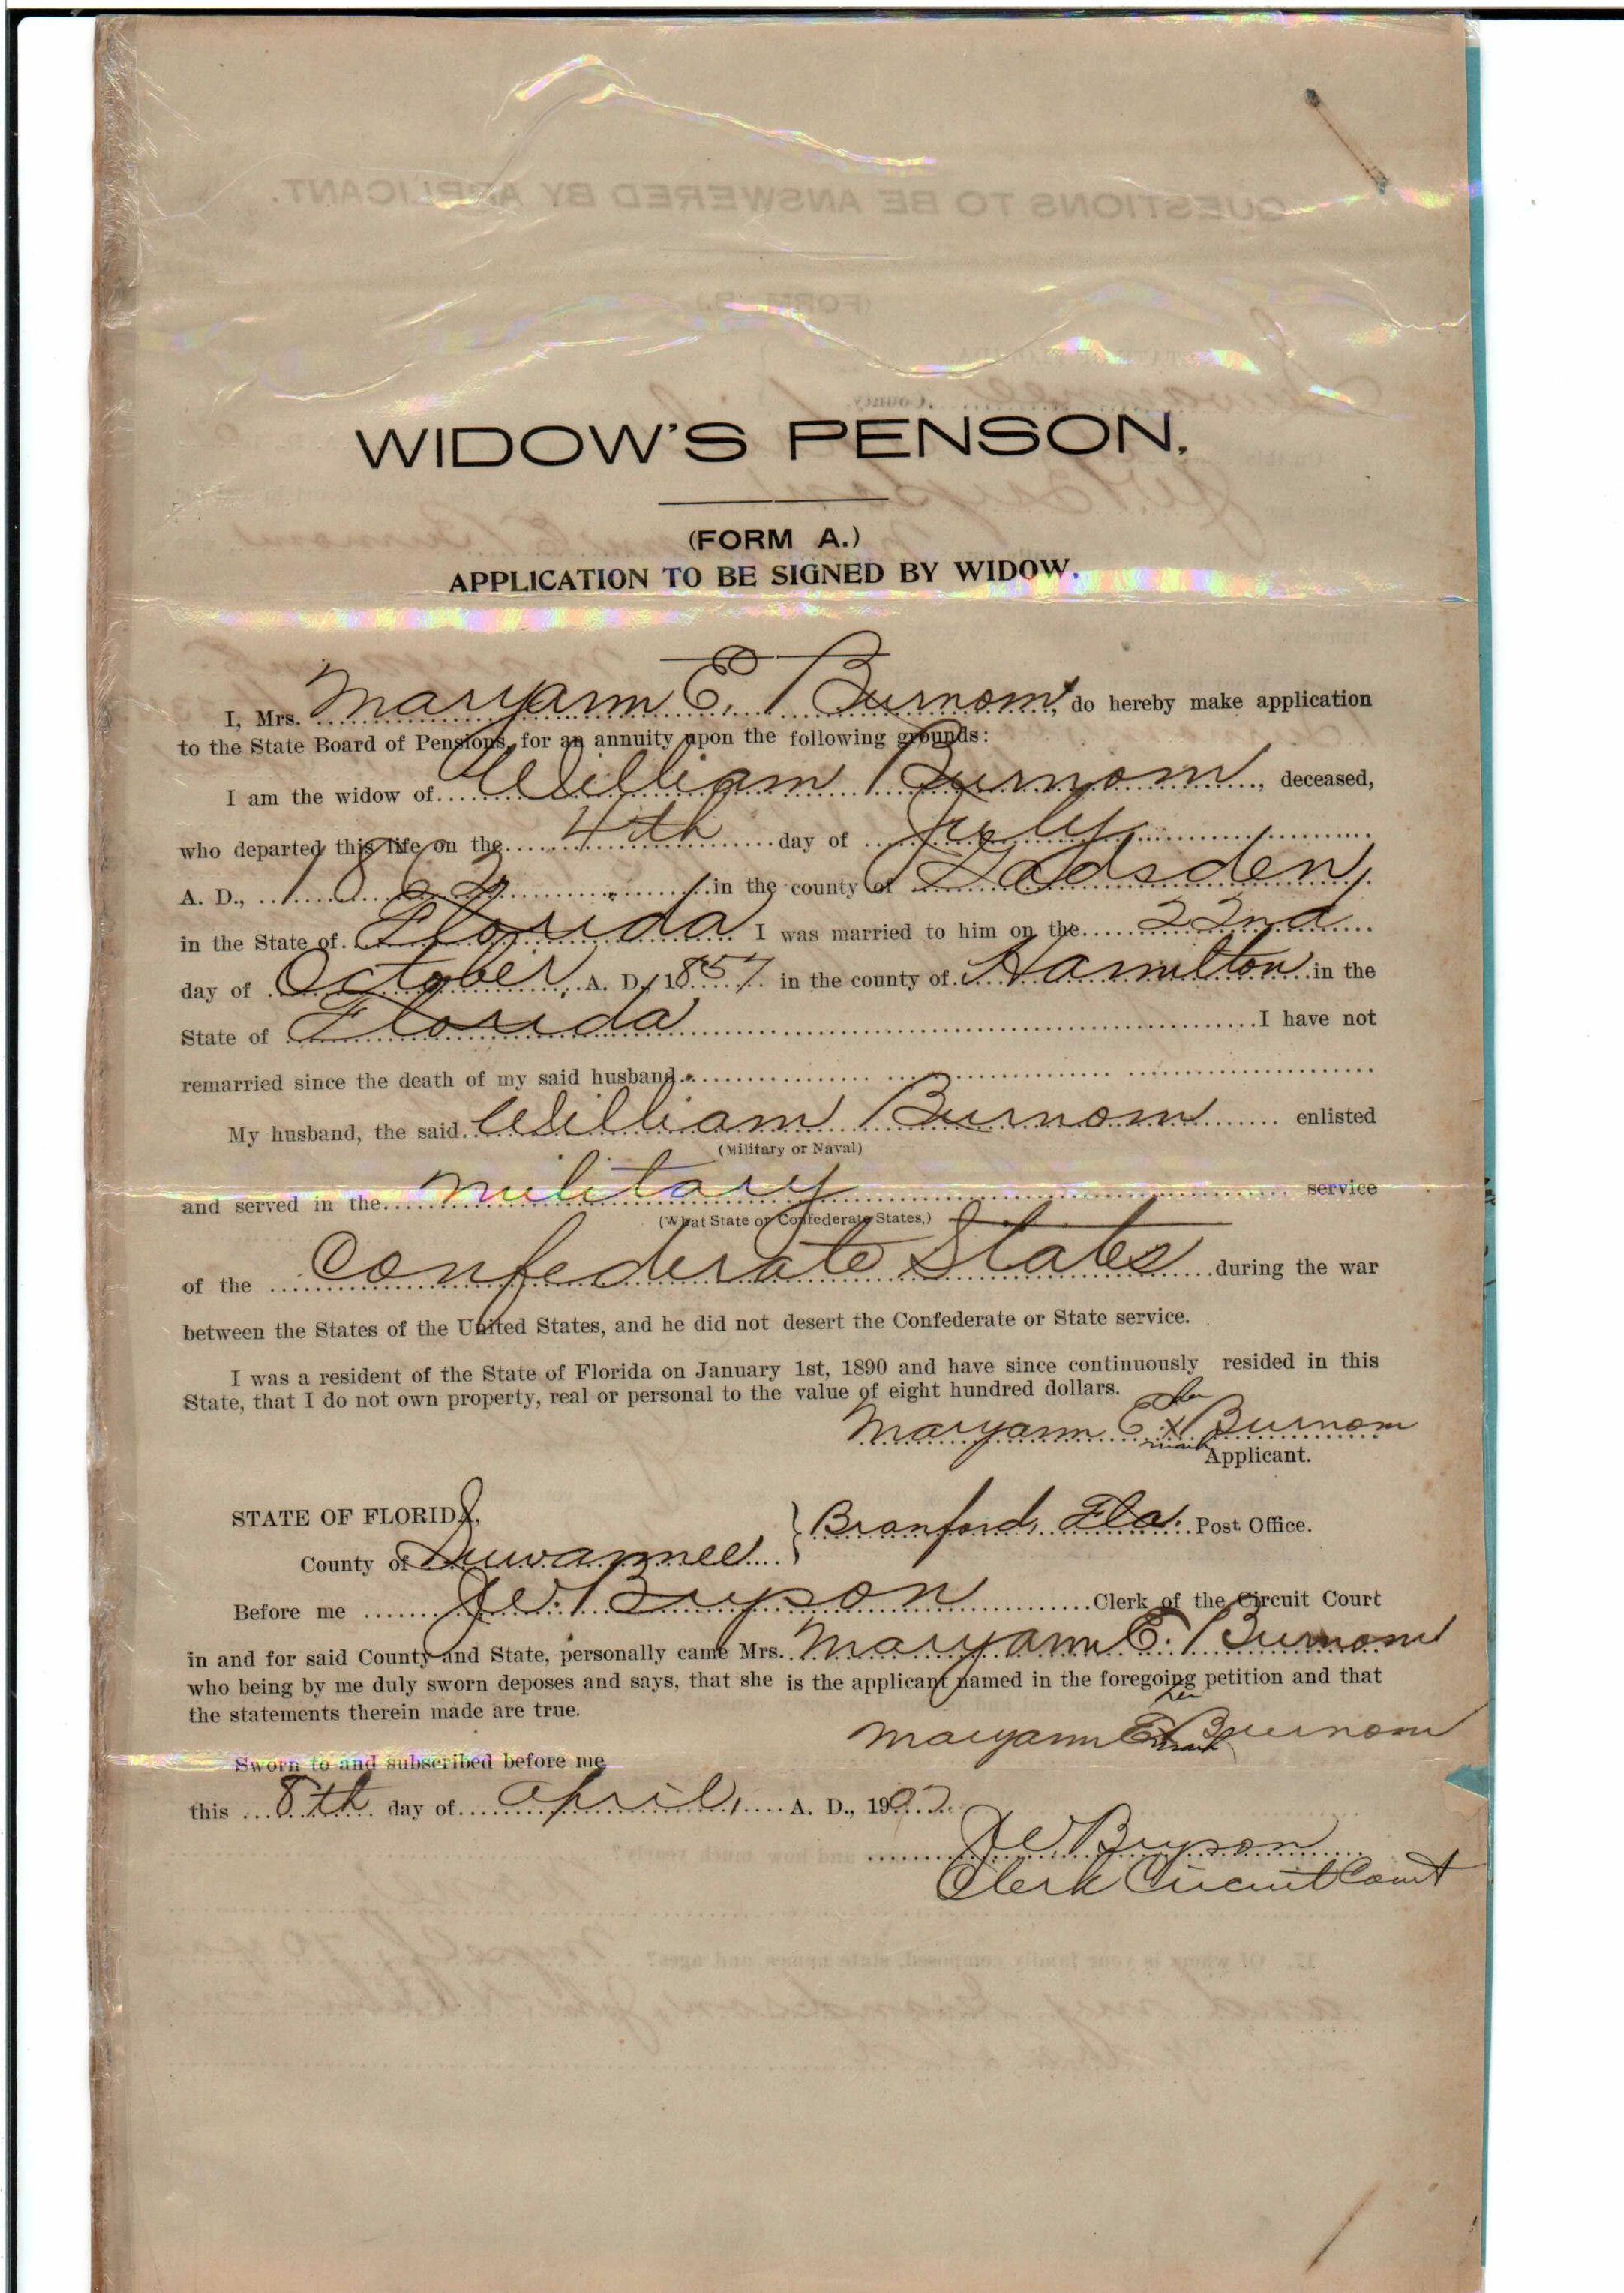 WIDOW'S PENSON.
(FORM A.)
APPLICATION TO BE SIGNED BY WIDOW.
I, Mrs. Maryann E. Burnom, do hereby make application
to the State Board of Pensions, for an annuity upon the following grounds:
I am the widow of William Burnom, deceased,
who departed this life on the 4th day of July
A. D., 1863 in the county of Gadsden,
in the State of Florida I was married to him on the 22nd
day of October A. D., 1857 in the county of Hamilton in the
State of Florida I have not
remarried since the death of my said husband.
My husband, the said William Burnom enlisted
(Military or Naval)
and served in the military service
(What State or Confederate States,)
of the Confederate States during the war
between the States of the United States, and he did not desert the Confederate or State service.
I was a resident of the State of Florida on January 1st, 1890 and have since continuously resided in this
State, that I do not own property, real or personal to the value of eight hundred dollars.
her
Maryann E x Burnom
mark
Applicant.
STATE OF FLORIDA,
Branford, Fla. Post Office.
County of Suwannee
Before me J W Bryson Clerk of the Circuit Court
in and for said County and State, personally came Mrs. Maryann E. Burnom
who being by me duly sworn deposes and says, that she is the applicant named in the foregoing petition and that
the statements therein made are true.
her
Maryann E x Burnom
mark
Sworn to and subscribed before me
this 8th day of April, A. D., 1907
J W Bryson
Clerk Circuit Court